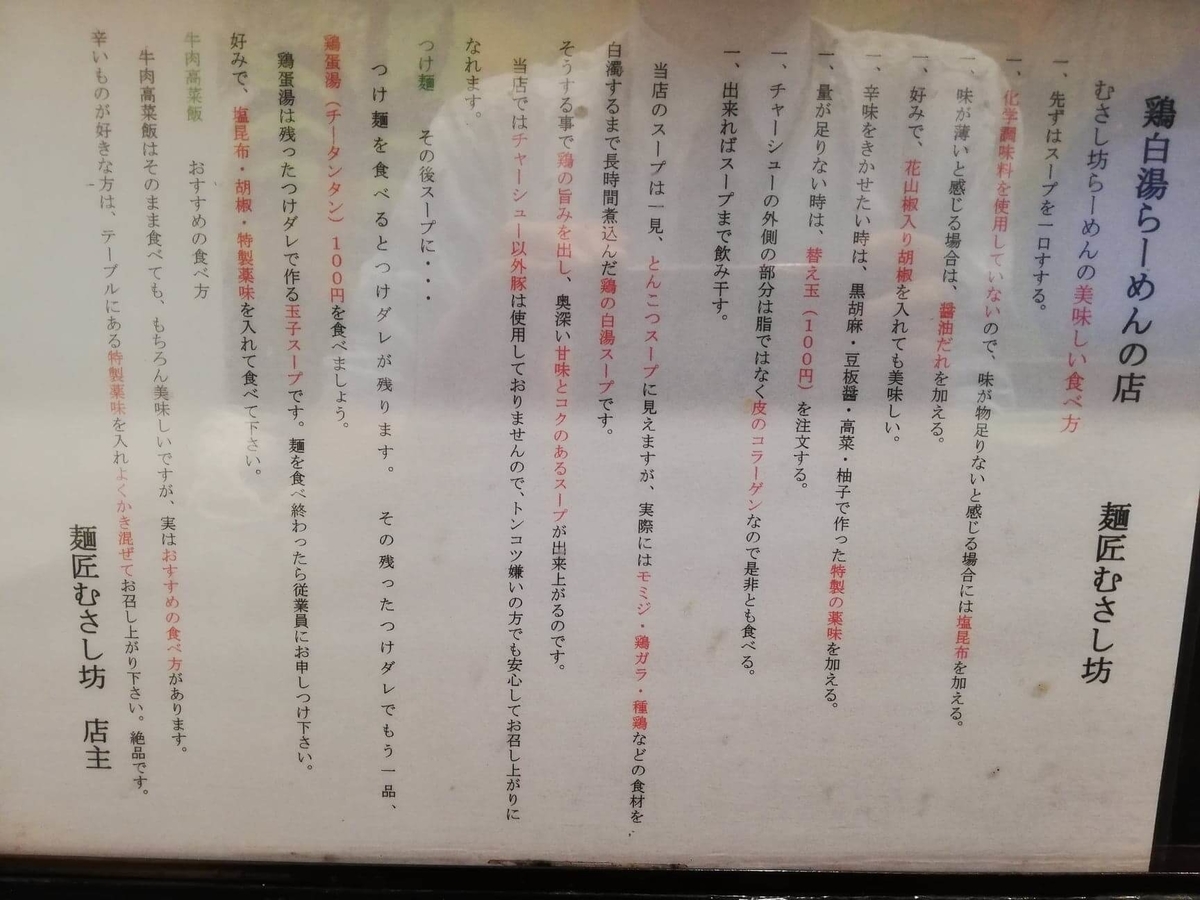 鶏白湯らーめんの店　麺匠むさし坊
むさし坊らーめんの美味しい食べ方
一、先ずはスープを一口すする。
一、化学調味料を使用していないので、味が物足りないと感じる場合には塩昆布を加える。
一、味が薄いと感じる場合は、醤油だれを加える。
一、好みで、花山椒入り胡椒を入れても美味しい。
一、辛味をきかせたい時は、黒胡麻・豆板醤・高菜・柚子で作った特製の薬味を加える。
一、量が足りない時は、替え玉（１００円）を注文する。
一、チャーシューの外側の部分は脂ではなく皮のコラーゲンなので是非とも食べる。
一、出来ればスープまで飲み干す。
当店のスープは一見、とんこつスープに見えますが、実際にはモミジ・鶏ガラ・種鶏などの食材を
白濁するまで長時間煮込んだ鶏の白湯スープです。
そうする事で鶏の旨みを出し、奥深い甘味とコクのあるスープが出来上がるのです。
当店ではチャーシュー以外豚は使用しておりませんので、トンコツ嫌いの方でも安心してお召し上がりに
なれます。
つけ麺　その後スープに・・・
つけ麺を食べるとつけダレが残ります。その残ったつけダレでもう一品、
鶏蛋湯（チータンタン）１００円を食べましょう。
鶏蛋湯は残ったつけダレで作る玉子スープです。麺を食べ終わったら従業員にお申しつけ下さい。
好みで、塩昆布・胡椒・特製薬味を入れて食べて下さい。
牛肉高菜飯　おすすめの食べ方
牛肉高菜飯はそのまま食べても、もちろん美味しいですが、実はおすすめの食べ方があります。
辛いものが好きな方は、テーブルにある特製薬味を入れよくかき混ぜてお召し上がり下さい。絶品です。
麺匠むさし坊　店主